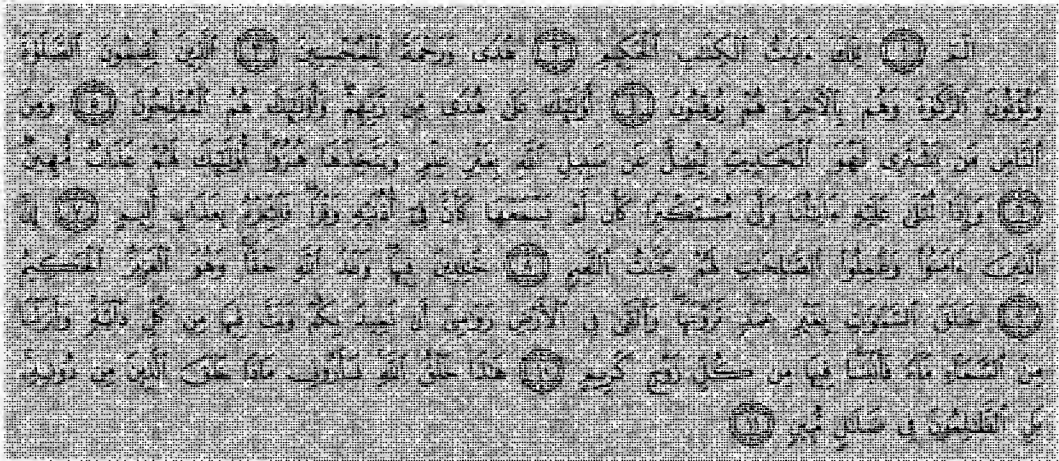 الٓمٓ ١ تِلْكَ ءَايَٰتُ ٱلْكِتَٰبِ ٱلْحَكِيمِ ٢ هُدًى وَرَحْمَةً لِّلْمُحْسِنِينَ ٣ ٱلَّذِينَ يُقِيمُونَ ٱلصَّلَوٰةَ
وَيُؤْتُونَ ٱلزَّكَوٰةَ وَهُم بِٱلْءَاخِرَةِ هُمْ يُوقِنُونَ ٤ أُو۟لَٰٓئِكَ عَلَىٰ هُدًى مِّن رَّبِّهِمْ وَأُو۟لَٰٓئِكَ هُمُ ٱلْمُفْلِحُونَ ٥ وَمِنَ
ٱلنَّاسِ مَن يَشْتَرِى لَهْوَ ٱلْحَدِيثِ لِيُضِلَّ عَن سَبِيلِ ٱللَّهِ بِغَيْرِ عِلْمٍ وَيَتَّخِذَهَا هُزُوًا أُو۟لَٰٓئِكَ لَهُمْ عَذَابٌ مُّهِينٌ
٦ وَإِذَا تُتْلَىٰ عَلَيْهِ ءَايَٰتُنَا وَلَّىٰ مُسْتَكْبِرًا كَأَن لَّمْ يَسْمَعْهَا كَأَنَّ فِىٓ أُذُنَيْهِ وَقْرًا فَبَشِّرْهُ بِعَذَابٍ أَلِيمٍ ٧ إِنَّ
ٱلَّذِينَ ءَامَنُوا۟ وَعَمِلُوا۟ ٱلصَّٰلِحَٰتِ لَهُمْ جَنَّٰتُ ٱلنَّعِيمِ ٨ خَٰلِدِينَ فِيهَا وَعْدَ ٱللَّهِ حَقًّا وَهُوَ ٱلْعَزِيزُ ٱلْحَكِيمُ
٩ خَلَقَ ٱلسَّمَٰوَٰتِ بِغَيْرِ عَمَدٍ تَرَوْنَهَا وَأَلْقَىٰ فِى ٱلْأَرْضِ رَوَٰسِىَ أَن تَمِيدَ بِكُمْ وَبَثَّ فِيهَا مِن كُلِّ دَآبَّةٍ وَأَنزَلْنَا
مِنَ ٱلسَّمَآءِ مَآءً فَأَنۢبَتْنَا فِيهَا مِن كُلِّ زَوْجٍ كَرِيمٍ ١٠ هَٰذَا خَلْقُ ٱللَّهِ فَأَرُونِى مَاذَا خَلَقَ ٱلَّذِينَ مِن دُونِهِۦ
بَلِ ٱلظَّٰلِمُونَ فِى ضَلَٰلٍ مُّبِينٍ ١١